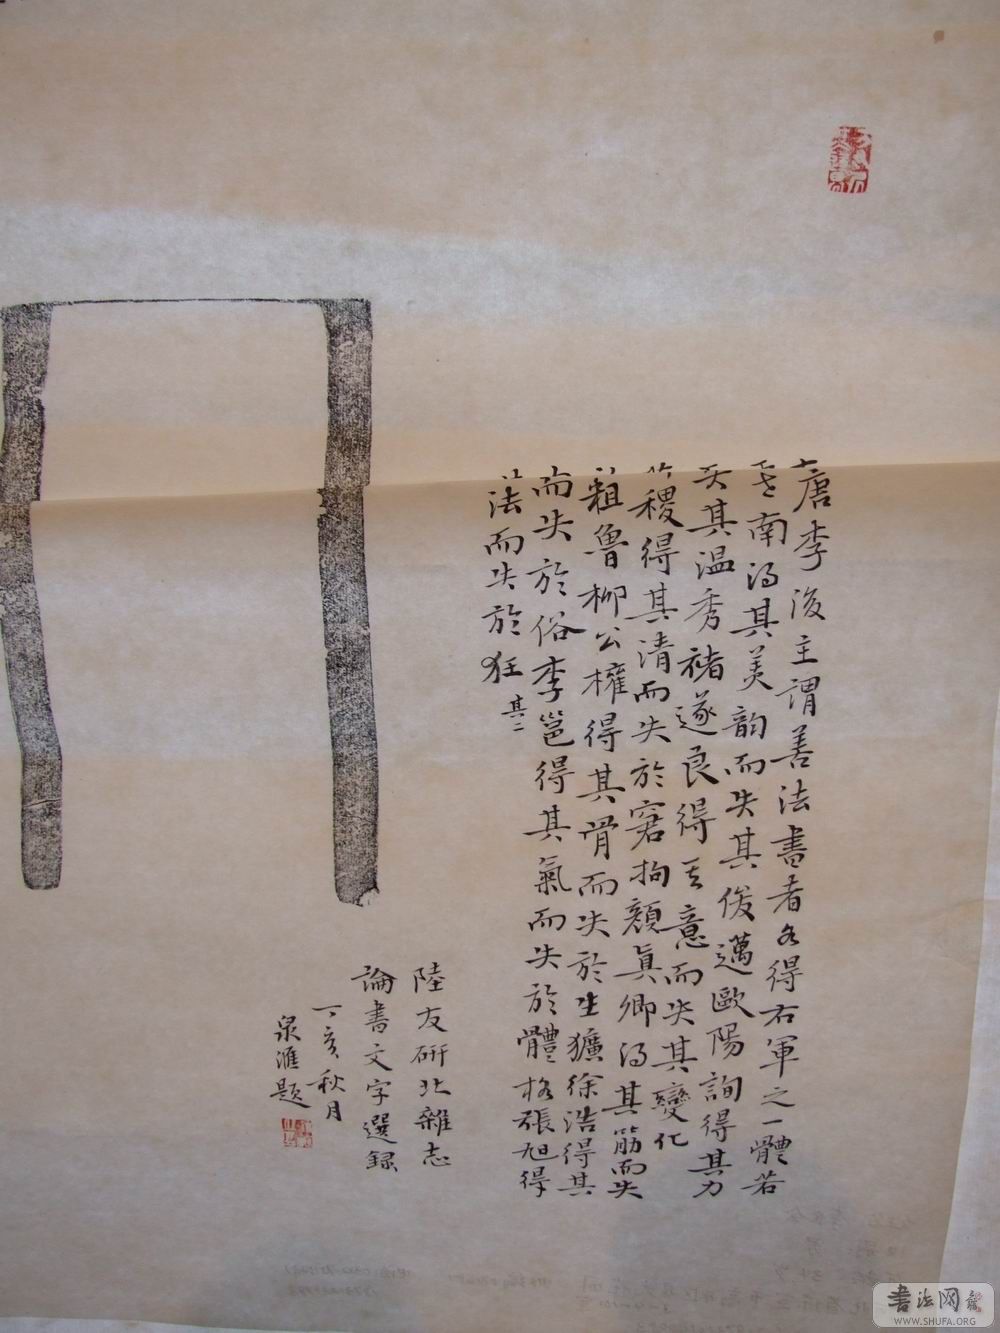 唐李後主謂善法書者各得右軍之一體若
南得其美韻而失其俊邁歐陽詢得其力
失其温秀褚遂良得其意而失其變化
稷得其清而失於窘拘顏眞卿得其筋而失
粗魯柳公權得其骨而失於生獷徐浩得其
而失於俗李邕得其氣而失於體格張旭得
法而失於狂 其二
陸友研北雜志
論書文字選録
丁亥秋月
泉滙題
書法网
WWW.SHUFA.ORG